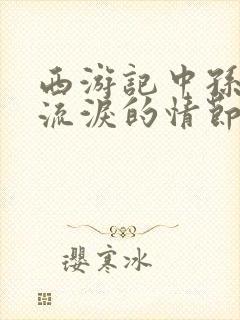 西游記中孫
流淚的情節
瓔寒冰